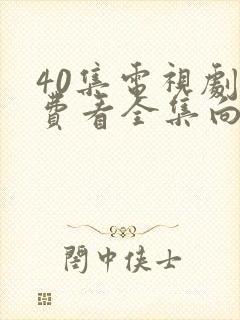 40集電視劇
費看全集向
閣中俠士